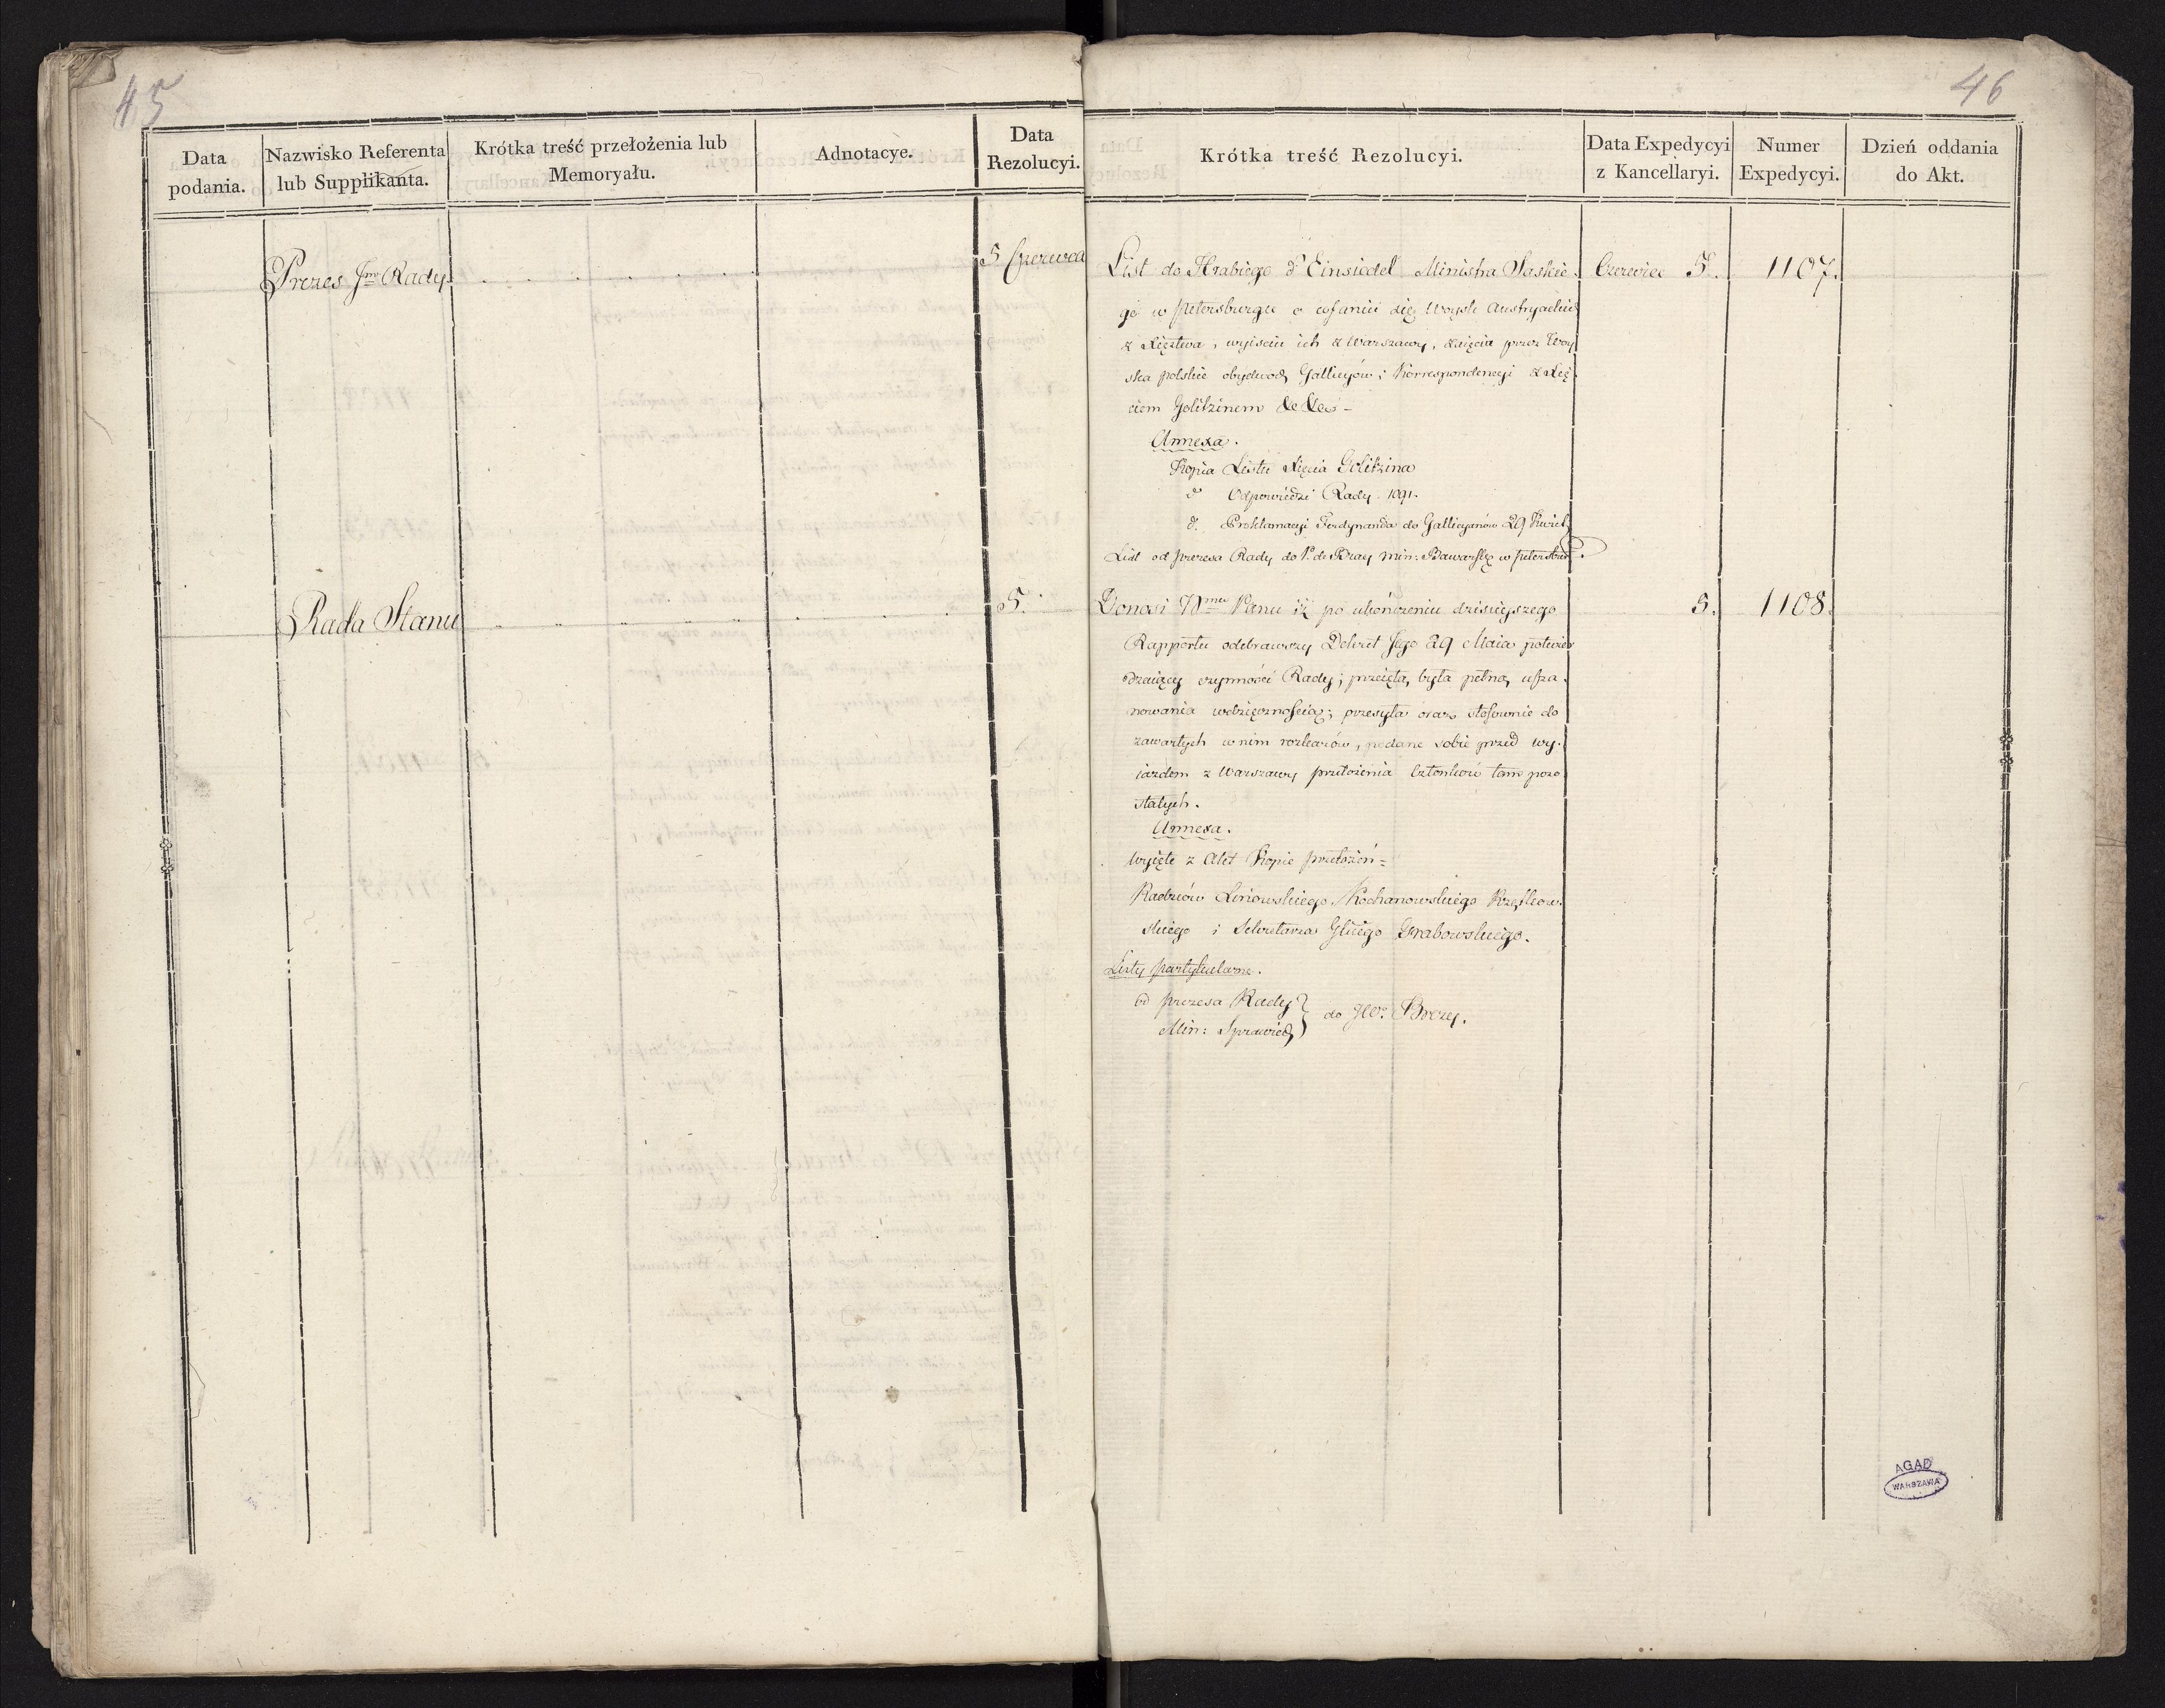 45
46
Data podania.
Nazwisko Referenta lub Supplikanta.
Krótka treść przełożenia lub Memoryału.
Adnotacye.
Data Rezolucyi.
Krótka treść Rezolucyi.
Data Expedycyi z Kancellaryi.
Numer Expedycyi.
Dzień oddania do Akt.
Prezes Rady
5 Czerwca
List do Hrabiego d'Einsiedel Ministra Saskie- Czerwiec 5. 1107.
go w Petersburgu o cofaniu się Woysk Austryackich
z Xięztwa, wyiściu ich z Warszawy, zaięcia przez Woy
ska polskie obydwoch Gallicyów; Korrespondencyi z Xię-
ciem Golitzinem &c &c -
Annexa.
Kopia Listu Xięcia Golitzina
do Odpowiedzi Rady. 1091.
do Proklamacyi Ferdynanda do Gallicyanów 29 Kwiet.
List od prezesa Rady do P. de Bray Min: Bawarsk: w Petersbur.
Rada Stanu
5.
Donosi Nmu Panu iż po ukończeniu dzisieyszego 5. 1108.
Rapportu odebrawszy Dekret Jego 29 Maia potwier
dzaiący czynności Rady; przeięta, była pełną usza-
nowania wdzięcznością; przesyła oraz stosownie do
zawartych w nim rozkazów, podane sobie przed wy-
iazdem z Warszawy przełożenia Członków tam pozo
stałych.
Annexa.
Wyięte z Akt Kopie przełożeń=
Radzców Linowskiego, Kochanowskiego
skiego i Sekretarza Głnego Grabowskiego.
Listy partykularne.
od prezesa Rady
Min: Sprawied.
} do Brezy.
AGAD
WARSZAWA